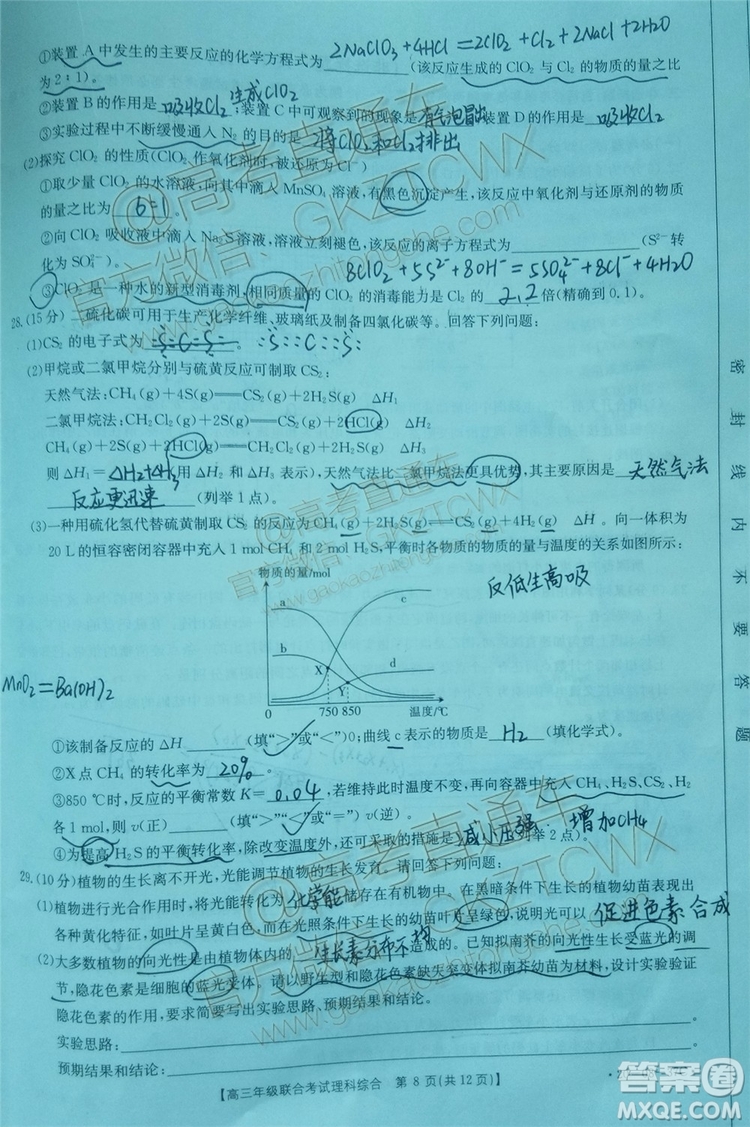 ①装置 A 中发生的主要反应的化学方程式为 2NaClO3+4HCl=2ClO2+Cl2+2NaCl+2H2O (该反应生成的 ClO2 与 Cl2 的物质的量之比
为 2∶1)。
②装置 B 的作用是 吸收Cl2 生成ClO2 ;装置 C 中可观察到的现象是 有气泡冒出 装置 D 的作用是 吸收Cl2
③实验过程中不断缓慢通入 N2 的目的是 将ClO2和Cl2排出
(2)探究 ClO2 的性质(ClO2 作氧化剂时,被还原为 Cl⁻)
①取少量 ClO2 的水溶液,向其中滴入 MnSO4 溶液,有黑色沉淀产生,该反应中氧化剂与还原剂的物质
的量之比为 6:1 。
②向 ClO2 吸收液中滴入 Na2S 溶液,溶液立刻褪色,该反应的离子方程式为 (S²⁻转
化为 SO4²⁻)。 8ClO2+5S²⁻+8OH⁻=5SO4²⁻+8Cl⁻+4H2O
③ClO2 是一种水的新型消毒剂,相同质量的 ClO2 的消毒能力是 Cl2 的 2.2 倍(精确到 0.1)。
28.(15 分) 二硫化碳可用于生产化学纤维、玻璃纸及制备四氯化碳等。回答下列问题:
(1)CS2 的电子式为 :S::C::S: 。 :S::C::S:
(2)甲烷或二氯甲烷分别与硫黄反应可制取 CS2:
天然气法:CH4(g)+4S(g)══CS2(g)+2H2S(g) ΔH1
二氯甲烷法:CH2Cl2(g)+2S(g)══CS2(g)+2HCl(g) ΔH2
CH4(g)+2S(g)+2HCl(g)══CH2Cl2(g)+2H2S(g) ΔH3
则 ΔH1= ΔH2+ΔH3 用 ΔH2 和 ΔH3 表示),天然气法比二氯甲烷法更具优势,其主要原因是 天然气法
反应更迅速 (列举 1 点)。
(3)一种用硫化氢代替硫黄制取 CS2 的反应为 CH4(g)+2H2S(g)══CS2(g)+4H2(g) ΔH。向一体积为
20 L 的恒容密闭容器中充入 1 mol CH4 和 2 mol H2S,平衡时各物质的物质的量与温度的关系如图所示:
物质的量/mol
反低生高吸
a
c
b
d
X
Y
0 750 850 温度/℃
MnO2=Ba(OH)2
①该制备反应的 ΔH (填“>”或“<”)0;曲线 c 表示的物质是 H2 (填化学式)。
②X 点 CH4 的转化率为 20% 。
③850 ℃时,反应的平衡常数 K= 0.04 ,若维持此时温度不变,再向容器中充入 CH4、H2S、CS2、H2
各 1 mol,则 v(正) (填“>”“<”或“=”)v(逆)。
④为提高 H2S 的平衡转化率,除改变温度外,还可采取的措施是 减小压强 · 增加CH4 (列举 2 点)。
29.(10 分)植物的生长离不开光,光能调节植物的生长发育。请回答下列问题:
(1)植物进行光合作用时,将光能转化为 化学能 储存在有机物中。在黑暗条件下生长的植物幼苗表现出
各种黄化特征,如叶片呈黄白色,而在光照条件下生长的幼苗叶片呈绿色,说明光可以 促进色素合成
(2)大多数植物的向光性是由植物体内的 生长素分布不均 造成的。已知拟南芥的向光性生长受蓝光的调
节,隐花色素是细胞的蓝光受体。请以野生型和隐花色素缺失突变体拟南芥幼苗为材料,设计实验验证
隐花色素的作用,要求简要写出实验思路、预期结果和结论。
实验思路:
预期结果和结论:
【高三年级联合考试理科综合 第 8 页(共 12 页)】
密封线内不要答题
@高考直通车
官方微信:GKZTCWX
www.gaokaozhitongche.com
答案圈
MXQE.COM